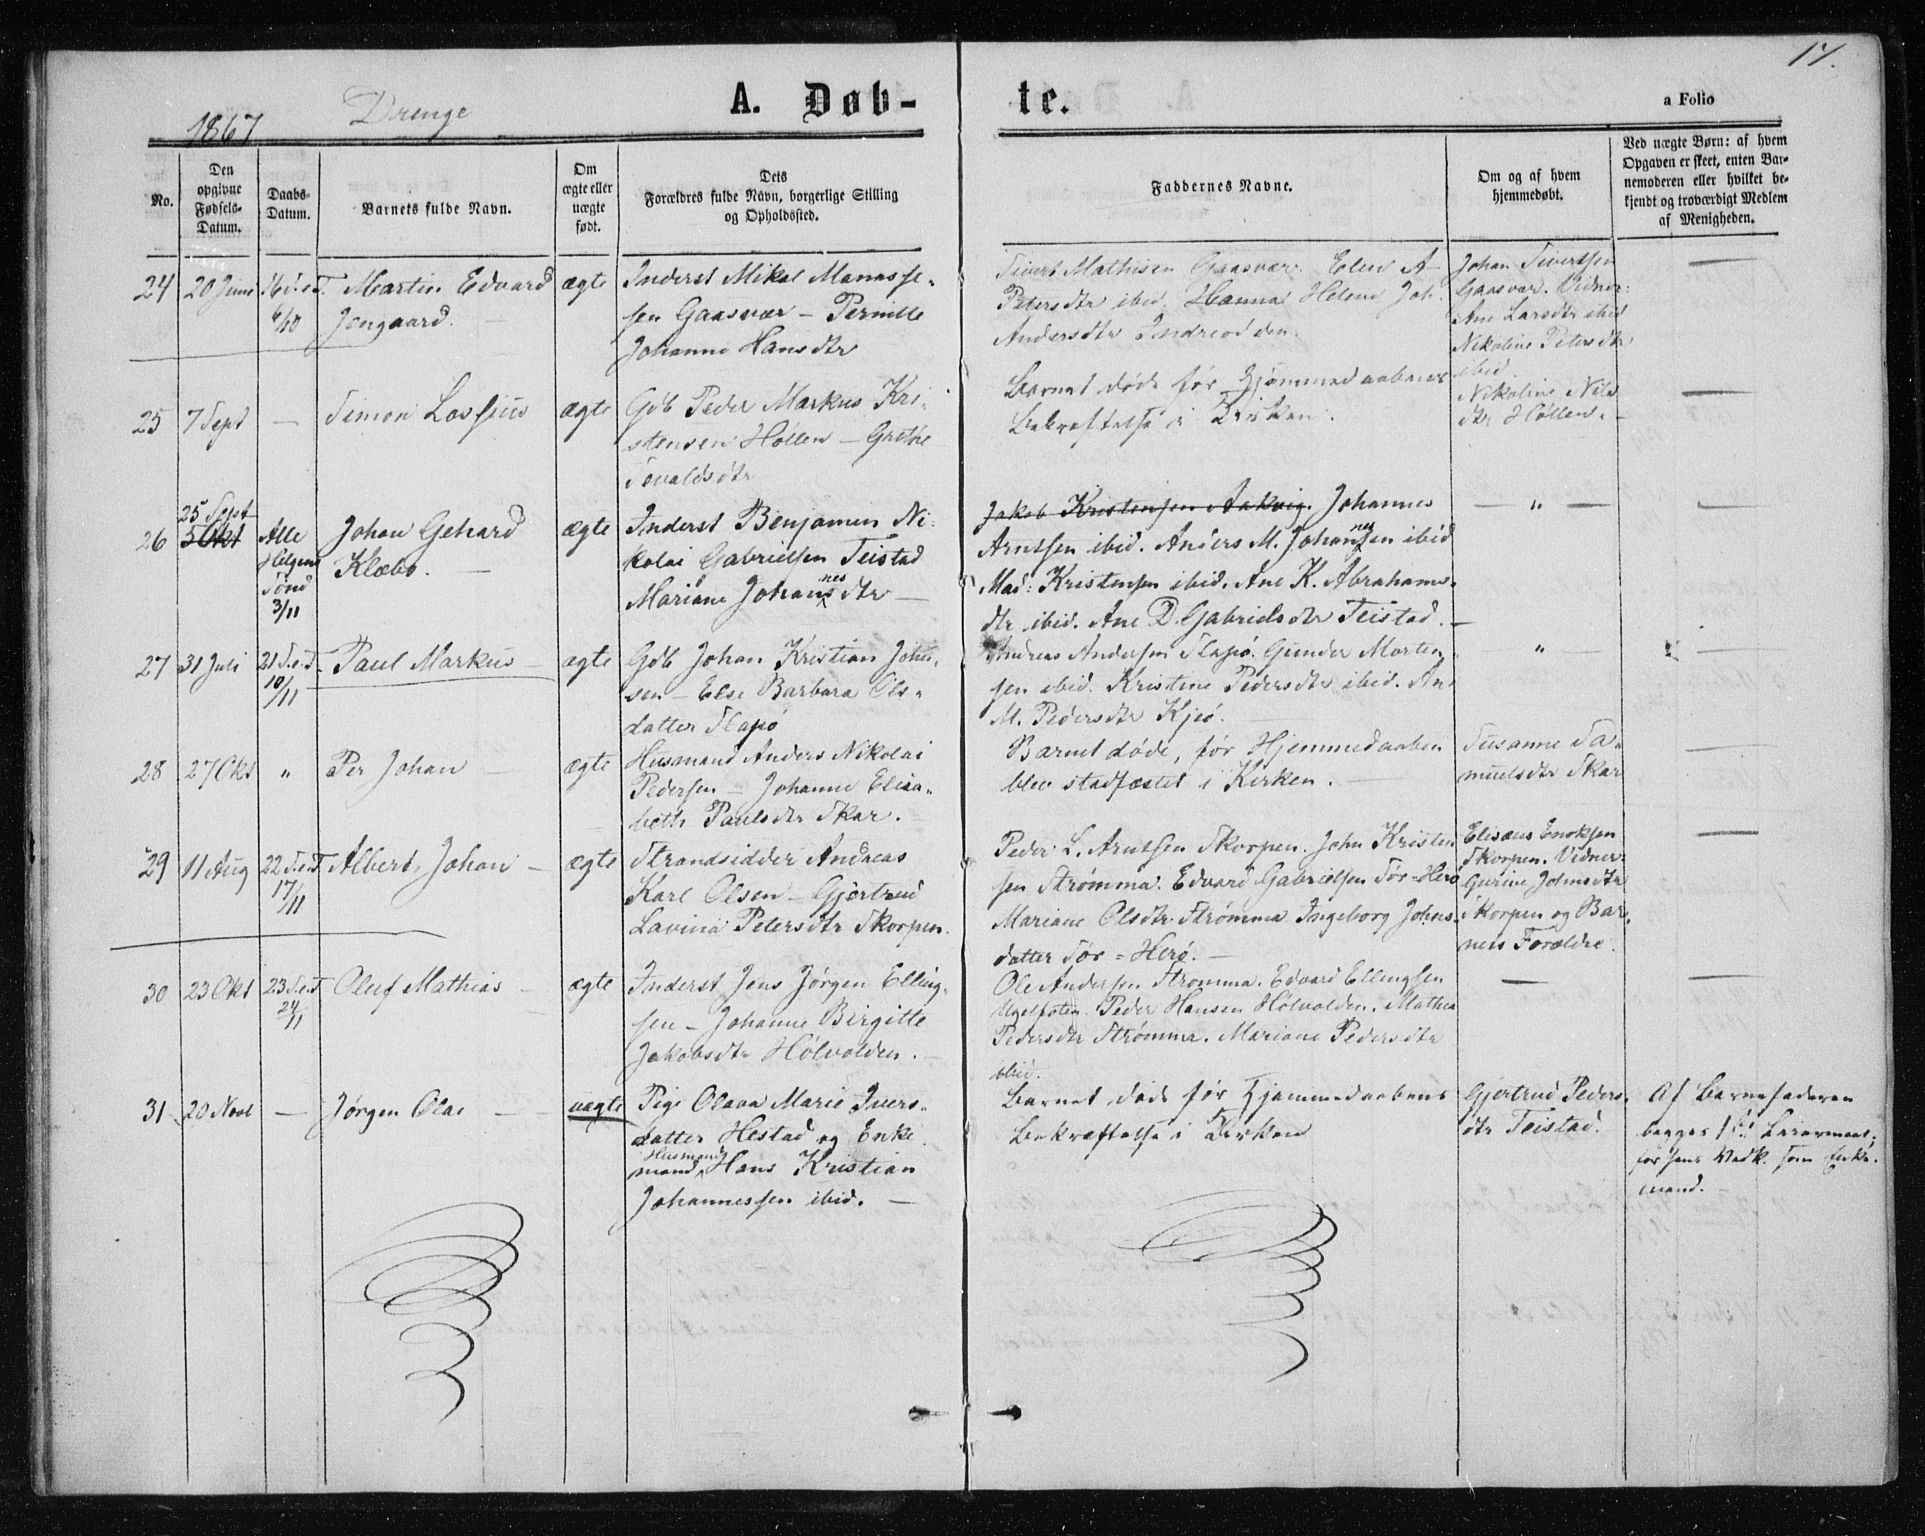 17.
1867 Drenge A. Døb- te. a Folio
No.
Den opgivne Fødsels-Datum.
Daabs-Datum.
Barnets fulde Navn.
Om ægte eller uægte født.
Dets Forældres fulde Navn, borgerlige Stilling og Opholdssted.
Faddernes Navne.
Om og af hvem hjemmedøbt.
Ved uægte Børn: af hvem Opgaven er skeet, enten Barnemoderen eller hvilket bekjendt og troværdigt Medlem af Menigheden.
24 20 Juni 16 S.e.T. 6/10
Martin Edvard
Jengaard. —
ægte
Inderst Mikal Manasse-
sen Gaasvær — Pernille
Johanne Hansdtr
Sivert Mathisen Gaasvær. Elen A
Petersdtr ibid. Hanna Helene Joh.
Andersdtr Indreodden.
Johan Sivertsen
Gaasvær. Vidner:
Ane Larsdtr ibid
Nikoline Petersdtr
ibid.
—
25 7 Sept —
Simon Lossius
ægte
Gdb Peder Markus Kri-
stensen Höllen — Grethe
Sevaldsdtr
Barnet døde før Hjemmedaabens
Bekræftelse i Kirken.
Nikoline Nils
dtr Höllen. —
—
26 25 Sept
5 Okt
Alle
Helgens
Sønd
3/11
Johan Gehard
Klæbo. —
ægte
Inderst Benjamin Ni-
kolai Gabrielsen Teistad
Mariane Johannesdtr —
Jakob Kristensen Aakvig. Johannes
Arntsen ibid. Anders M. Johannesen ibid
Mad: Kristensen ibid. Ane K. Abrahams-
dtr ibid. Ane D. Gabrielsdtr Teistad. —
— " —
—
27 31 Juli 21 S.e.T 10/11
Paul Markus —
ægte
Gdb Johan Kristian John-
sen — Else Barbara Ols-
datter Slapö
Andreas Andersen Slapö. Gunder Morten
sen ibid. Kristine Pedersdtr ibid. An
M. Pedersdtr Kjeö. —
" —
—
28 27 Okt "
Per Johan —
ægte
Husmand Anders Nikolai
Pedersen — Johanne Elisa-
beth Paulsdtr Skar.
Barnet døde, før Hjemmedaaben
blev stadfæstet i Kirken. —
Susanne Sa-
muelsdtr Skar
—
29 11 Aug 22 S.e.T 17/11
Albert Johan —
ægte
Strandsidder Andreas
Karl Olsen — Gjertrud
Lavina Petersdtr Skorpen.
Peder L. Arntsen Skorpen. John Kristen
sen Strømma. Edvard Gabrielsen Sör=Herö
Mariane Olsdtr Strømma Ingeborg Johns-
datter Sör=Herö. —
Elisæus Enoksen
Skorpen. Vidner:
Gurine Johnsdtr
Skorpen og Bar-
nets Forældre.
—
30 23 Okt 23 S.e.T 24/11
Oluf Mathias —
ægte
Inderst Jens Jørgen Elling-
sen — Johanne Birgitte
Jakobsdtr Hölvolden. —
Ole Andersen Strømma. Edvard Ellingsen
Peder Hansen Hölvolden. Mathea
Pedersdtr Strømma. Mariane Pedersdtr
ibid.
—
—
31 20 Novb —
Jørgen Olai —
uægte
Pige Olava Marie Ivers-
datter Hestad og Enke
mand, Husmand Hans Kristian
Johannessen ibid. —
Barnet døde før Hjemmedaabens
Bekræftelse i Kirken
Gjertrud Peders-
dtr Teistad.
Af Barnefaderen
begges 1ste Leiermaal;
for hans Vedk. som Enke-
mand. —